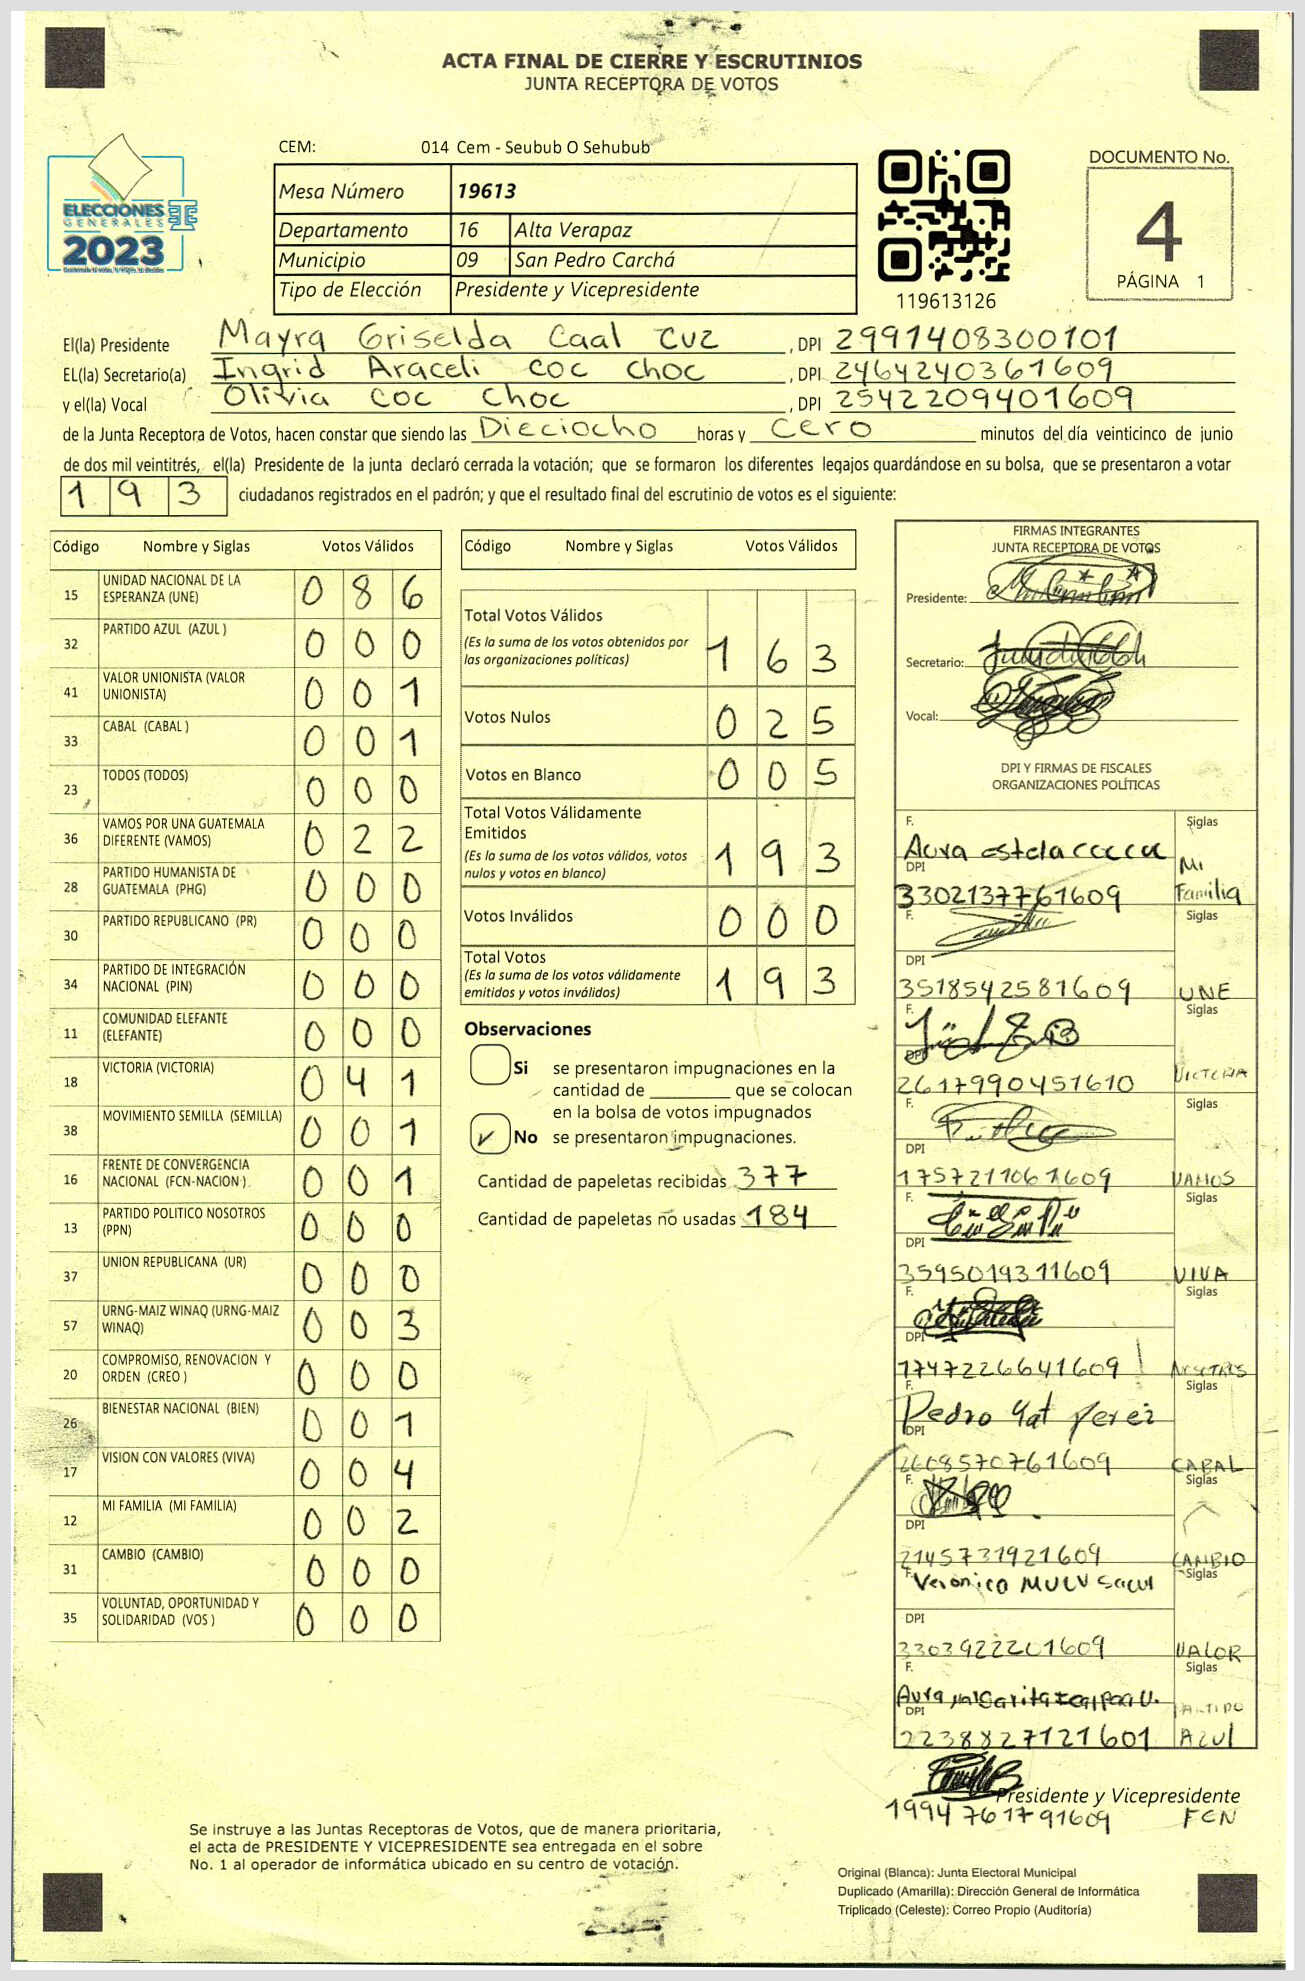 ACTA FINAL DE CIERRE Y ESCRUTINIOS
JUNTA RECEPTORA DE VOTOS
ELECCIONES
GENERALES
2023
CEM: 014 Cem - Seubub O Sehubub
Mesa Número 19613
Departamento 16 Alta Verapaz
Municipio 09 San Pedro Carchá
Tipo de Elección Presidente y Vicepresidente
119613126
DOCUMENTO No.
4
PÁGINA 1
El(la) Presidente Mayra Griselda Caal Cuz , DPI 2991408300101
EL(la) Secretario(a) Ingrid Araceli coc choc , DPI 2464240361609
y el(la) Vocal Olivia coc choc , DPI 2542209401609
de la Junta Receptora de Votos, hacen constar que siendo las Dieciocho horas y cero minutos del día veinticinco de junio
de dos mil veintitrés, el(la) Presidente de la junta declaró cerrada la votación; que se formaron los diferentes legajos guardándose en su bolsa, que se presentaron a votar
193 ciudadanos registrados en el padrón; y que el resultado final del escrutinio de votos es el siguiente:
Código Nombre y Siglas Votos Válidos
15 UNIDAD NACIONAL DE LA ESPERANZA (UNE) 0 8 6
32 PARTIDO AZUL (AZUL ) 0 0 0
41 VALOR UNIONISTA (VALOR UNIONISTA) 0 0 1
33 CABAL (CABAL ) 0 0 1
23 TODOS (TODOS) 0 0 0
36 VAMOS POR UNA GUATEMALA DIFERENTE (VAMOS) 0 2 2
28 PARTIDO HUMANISTA DE GUATEMALA (PHG) 0 0 0
30 PARTIDO REPUBLICANO (PR) 0 0 0
34 PARTIDO DE INTEGRACIÓN NACIONAL (PIN) 0 0 0
11 COMUNIDAD ELEFANTE (ELEFANTE) 0 0 0
18 VICTORIA (VICTORIA) 0 4 1
38 MOVIMIENTO SEMILLA (SEMILLA) 0 0 1
16 FRENTE DE CONVERGENCIA NACIONAL (FCN-NACION ) 0 0 1
13 PARTIDO POLITICO NOSOTROS (PPN) 0 0 0
37 UNION REPUBLICANA (UR) 0 0 0
57 URNG-MAIZ WINAQ (URNG-MAIZ WINAQ) 0 0 3
20 COMPROMISO, RENOVACION Y ORDEN (CREO ) 0 0 0
26 BIENESTAR NACIONAL (BIEN) 0 0 1
17 VISION CON VALORES (VIVA) 0 0 4
12 MI FAMILIA (MI FAMILIA) 0 0 2
31 CAMBIO (CAMBIO) 0 0 0
35 VOLUNTAD, OPORTUNIDAD Y SOLIDARIDAD (VOS ) 0 0 0
Código Nombre y Siglas Votos Válidos
Total Votos Válidos 1 6 3
(Es la suma de los votos obtenidos por
las organizaciones políticas)
Votos Nulos 0 2 5
Votos en Blanco 0 0 5
Total Votos Válidamente
Emitidos 1 9 3
(Es la suma de los votos válidos, votos
nulos y votos en blanco)
Votos Inválidos 0 0 0
Total Votos 1 9 3
(Es la suma de los votos válidamente
emitidos y votos inválidos)
Observaciones
Si se presentaron impugnaciones en la
cantidad de ________ que se colocan
en la bolsa de votos impugnados
No se presentaron impugnaciones.
Cantidad de papeletas recibidas 377
Cantidad de papeletas no usadas 184
FIRMAS INTEGRANTES
JUNTA RECEPTORA DE VOTOS
Presidente:
Secretario:
Vocal:
DPI Y FIRMAS DE FISCALES
ORGANIZACIONES POLÍTICAS
F. Siglas
Aura estela
DPI Mi
3302137761609 Familia
F. Siglas
DPI
3518542581609 UNE
F. Siglas
DPI
2617990451610 VICTORIA
F. Siglas
DPI
1757211061609 VAMOS
F. Siglas
DPI
3595019311609 VIVA
F. Siglas
DPI
1747226641609 NOSOTROS
F. Siglas
Pedro Yat Perez
DPI
2608570761609 CABAL
F. Siglas
DPI
2145731921609 CAMBIO
F. Siglas
Veronica
DPI
3303922201609 VALOR
F. Siglas
Aura
DPI PARTIDO
2238827121601 AZUL
Presidente y Vicepresidente
1994761791609 FCN
Se instruye a las Juntas Receptoras de Votos, que de manera prioritaria,
el acta de PRESIDENTE Y VICEPRESIDENTE sea entregada en el sobre
No. 1 al operador de informática ubicado en su centro de votación.
Original (Blanca): Junta Electoral Municipal
Duplicado (Amarilla): Dirección General de Informática
Triplicado (Celeste): Correo Propio (Auditoría)